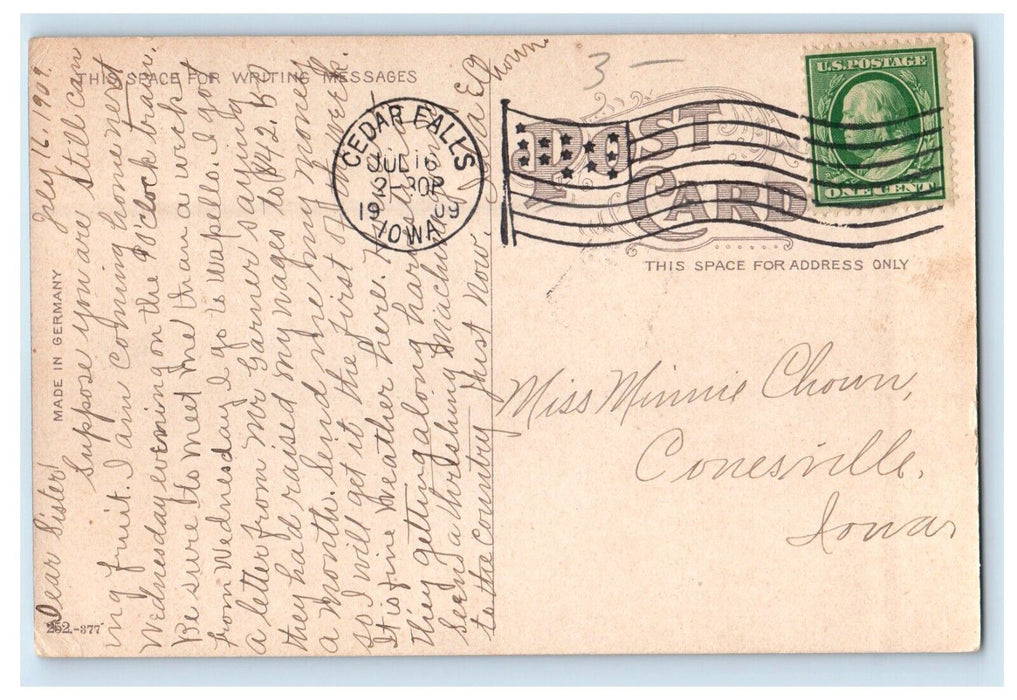 THIS SPACE FOR WRITING MESSAGES
July 16, 1909.
Dear Sister
Suppose you are still can
ing fruit. I am coming home next
Wednesday evening on the 9 O'clock train.
Be sure to meet me than a week
from Wednesday I go to Wapello. I got
a letter from Mr Garner saying
they had raised my wages to $42.50
a month. Send me my money
so I will get it the first of week.
It is fine weather here.
They getting along harvesting
seen a threshing Machine
to the country just now. Jared
Chown
MADE IN GERMANY
252.-377
CEDAR FALLS
JUL 16
3-30P
1909
IOWA
3 —
POST
CARD
U.S. POSTAGE
ONE CENT
THIS SPACE FOR ADDRESS ONLY
Miss Minnie Chown,
Conesville,
Iowa,